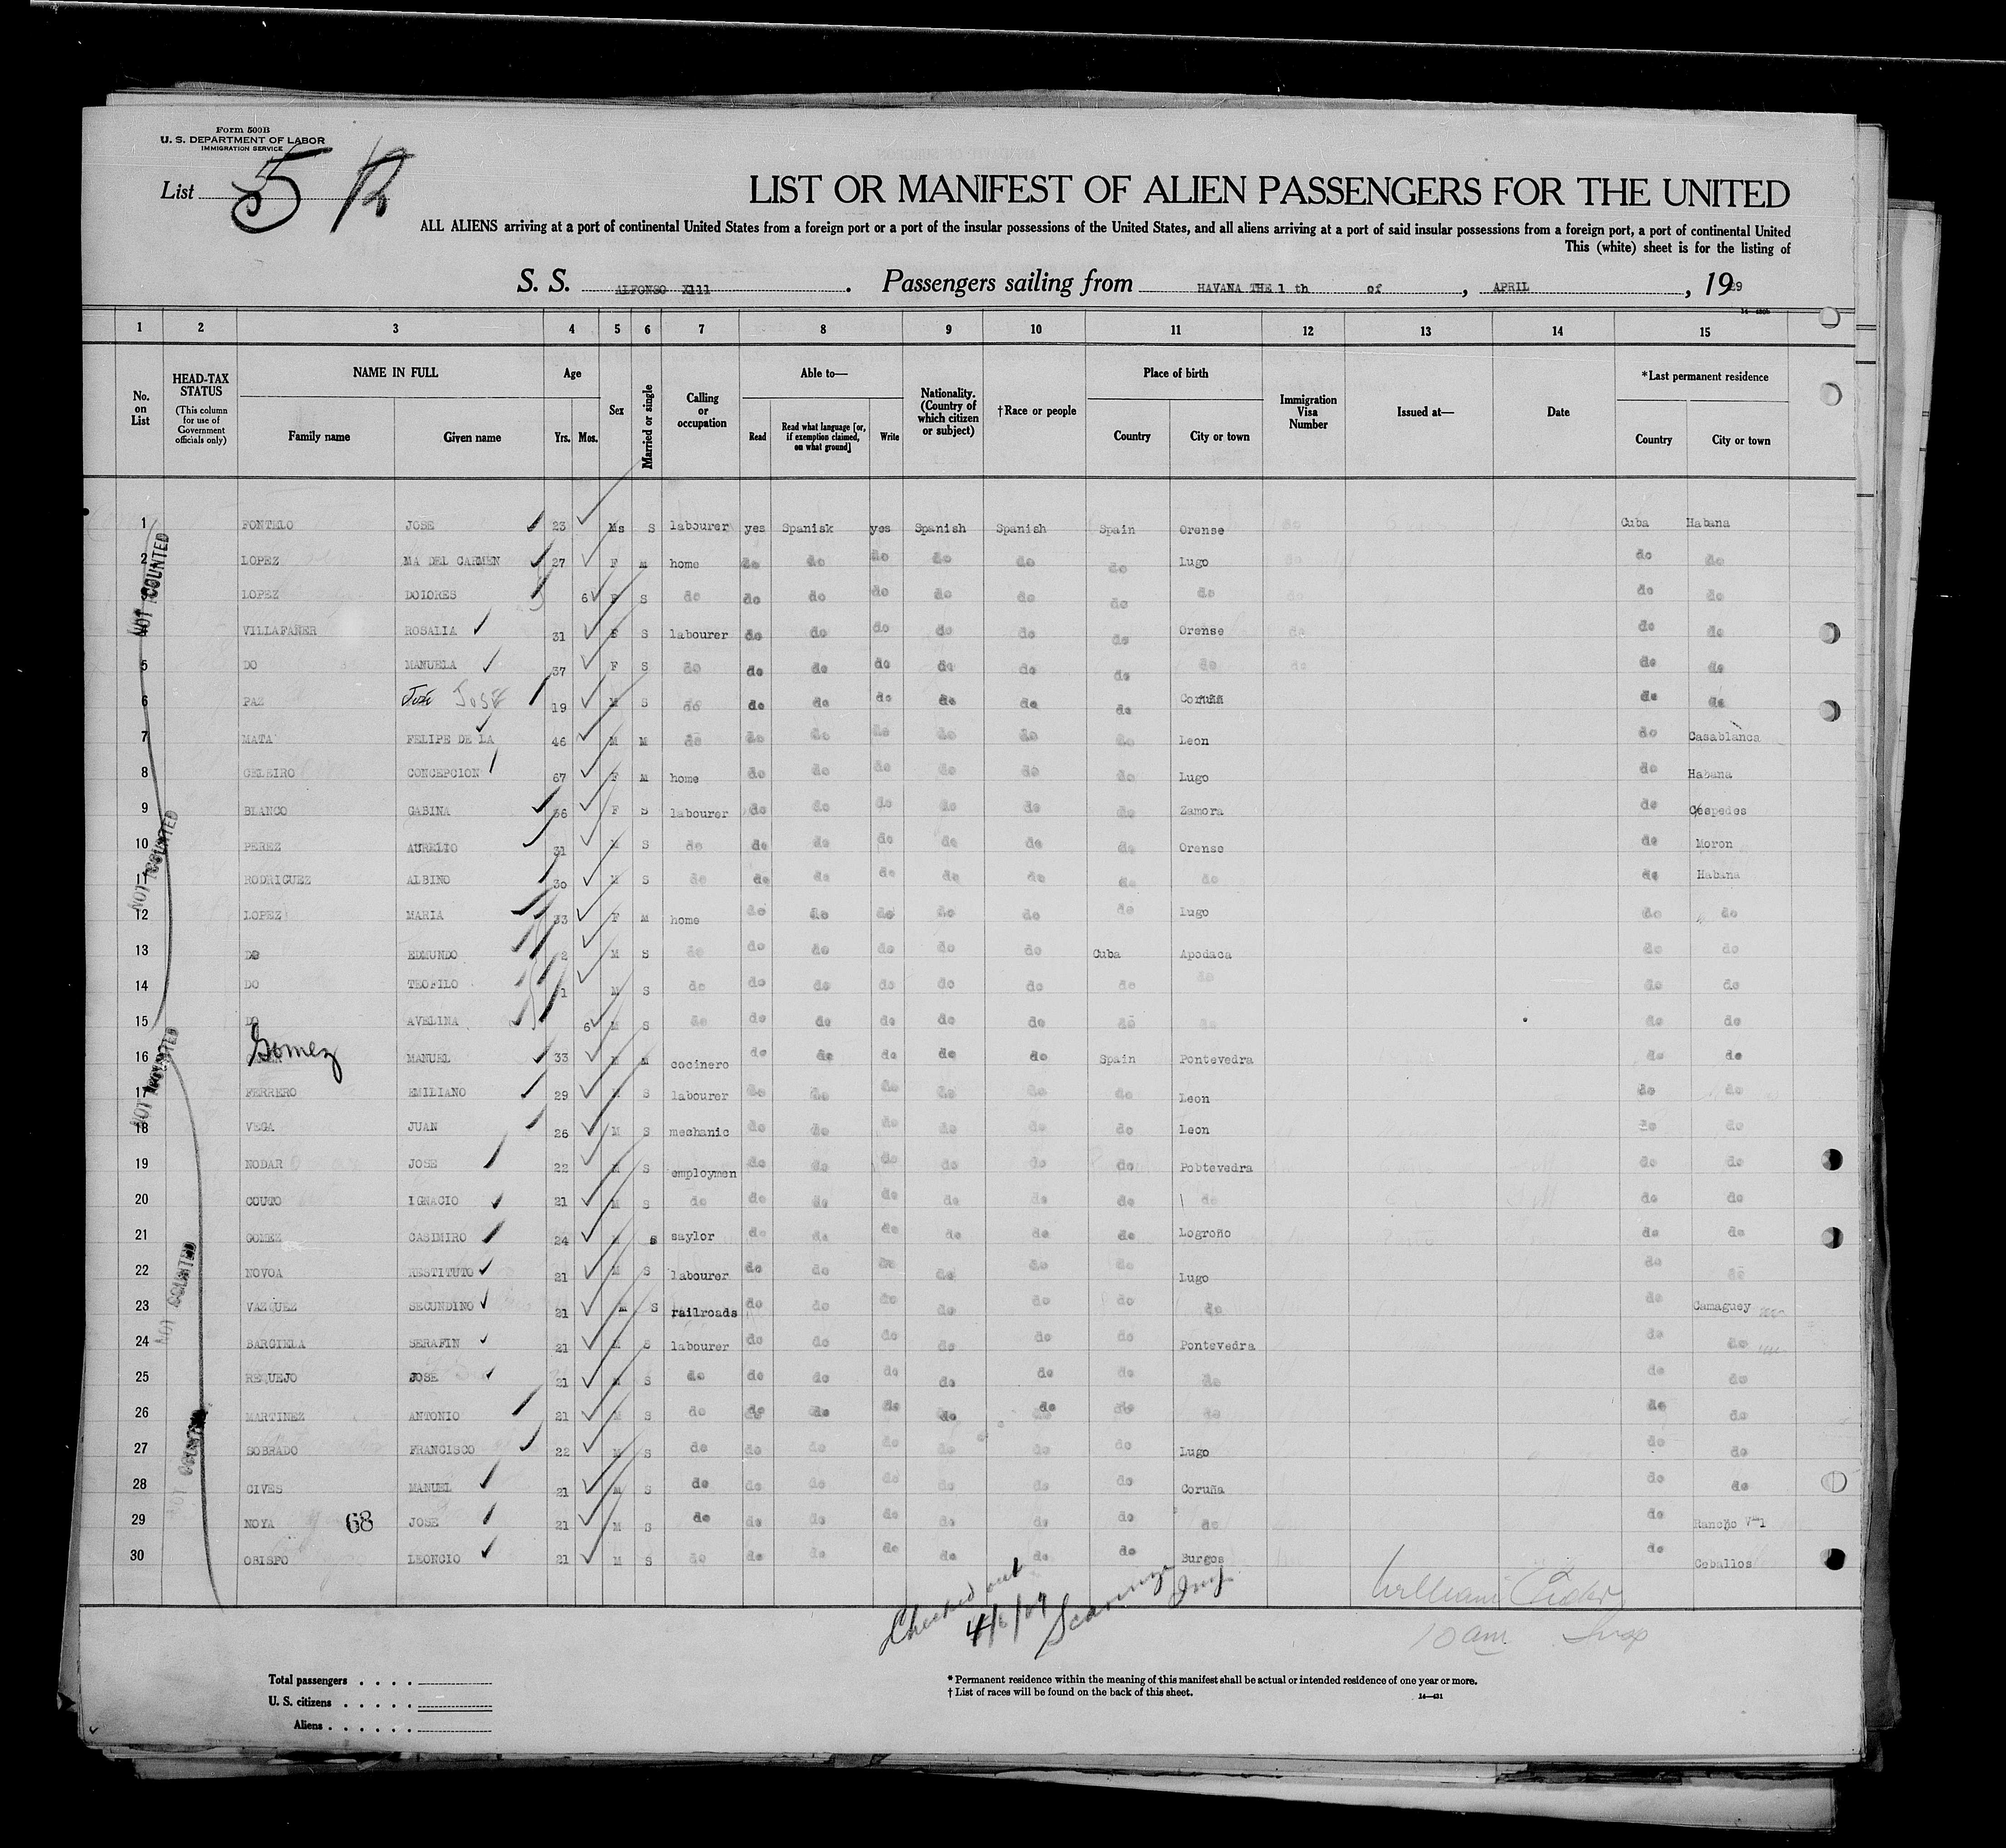 Form 500B
U. S. DEPARTMENT OF LABOR
IMMIGRATION SERVICE
List 5
LIST OR MANIFEST OF ALIEN PASSENGERS FOR THE UNITED
ALL ALIENS arriving at a port of continental United States from a foreign port or a port of the insular possessions of the United States, and all aliens arriving at a port of said insular possessions from a foreign port, a port of continental United
This (white) sheet is for the listing of
S. S. ALFONSO X111. Passengers sailing from HAVANA THE 1 th of, APRIL, 1929
1 2 3 4 5 6 7 8 9 10 11 12 13 14 15
No. on List
HEAD-TAX STATUS (This column for use of Government officials only)
NAME IN FULL Family name Given name
Age Yrs. Mos.
Sex
Married or single
Calling or occupation
Able to— Read Read what language [or, if exemption claimed, on what ground] Write
Nationality. (Country of which citizen or subject)
†Race or people
Place of birth Country City or town
Immigration Visa Number
Issued at—
Date
*Last permanent residence Country City or town
1 FONTELO JOSE 23 Ms S labourer yes Spanisk yes Spanish Spanish Spain Orense Cuba Habana
2 LOPEZ MA DEL CARMEN 27 F M home do do do do do do Lugo do do
LOPEZ DOLORES 6 F S do do do do do do do do do do
4 VILLAFAÑER ROSALIA 31 F S labourer do do do do do do Orense do do
5 DO MANUELA 37 F S do do do do do do do do do do
6 PAZ José JOSE 19 M S do do do do do do do Coruña do do
7 MATA FELIPE DE LA 46 M M do do do do do do do Leon do Casablanca
8 CELEIRO CONCEPCION 67 F M home do do do do do do Lugo do Habana
9 BLANCO GABINA 36 F S labourer do do do do do do Zamora do Céspedes
10 PEREZ AURELIO 31 M S do do do do do do do Orense do Moron
11 RODRIGUEZ ALBINO 30 M S do do do do do do do do do Habana
12 LOPEZ MARIA 33 F M home do do do do do do Lugo do do
13 DO EDMUNDO 2 M S do do do do do do Cuba Apodaca do do
14 DO TEOFILO 1 M S do do do do do do do do do do
15 DO AVELINA 6 M S do do do do do do do do do do
16 Gomez MANUEL 33 M M cocinero do do do do do Spain Pontevedra do do
17 FERRERO EMILIANO 29 M S labourer do do do do do do Leon do do
18 VEGA JUAN 26 M S mechanic do do do do do do Leon do do
19 NODAR JOSE 22 M S employmen do do do do do do Pobtevedra do do
20 COUTO IGNACIO 21 M S do do do do do do do do do do
21 GOMEZ CASIMIRO 24 M S saylor do do do do do do Logroño do do
22 NOVOA RESTITUTO 21 M S labourer do do do do do do Lugo do do
23 VAZQUEZ SECUNDINO 21 M S railroads do do do do do do do do Camaguey
24 BARCIELA SERAFIN 21 M S labourer do do do do do do Pontevedra do do
25 REQUEJO JOSE 21 M S do do do do do do do do do do
26 MARTINEZ ANTONIO 21 M S do do do do do do do do do do
27 SOBRADO FRANCISCO 22 M S do do do do do do do Lugo do do
28 CIVES MANUEL 21 M S do do do do do do do Coruña do do
29 NOYA 68 JOSE 21 M S do do do do do do do do do Rancho
30 OBISPO LEONCIO 21 M S do do do do do do do Burgos do Ceballos
NOT COUNTED
NOT COUNTED
NOT COUNTED
NOT COUNTED
NOT COUNTED
Checked out
4/6/29
William
10 am Insp
Total passengers . . . .
U. S. citizens . . . . .
Aliens . . . . . .
* Permanent residence within the meaning of this manifest shall be actual or intended residence of one year or more.
† List of races will be found on the back of this sheet.
14—431